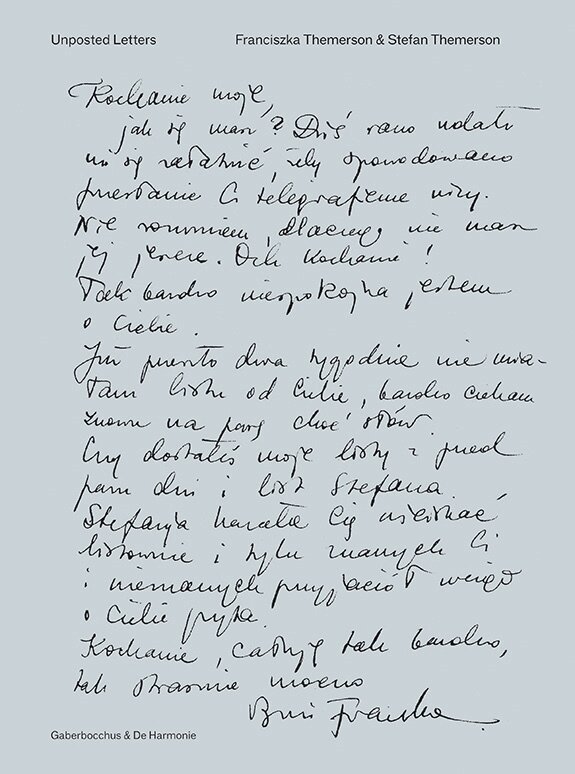 Unposted Letters
Franciszka Themerson & Stefan Themerson
Kochanie moje,
jak się masz? Dziś rano udało
mi się załatwić, żeby spowodowano
przesłanie Ci telegrafem wizy.
Nie rozumiem, dlaczego nie masz
jej jeszcze. Och Kochanie!
Tak bardzo niespokojna jestem
o Ciebie.
Już przeszło dwa tygodnie nie mia-
łam listu od Ciebie, bardzo czekam
znowu na parę choć słów
Czy dostałeś moje listy z przed
paru dni i list Stefana.
Stefanja kazała Cię uściskać
listownie i tylu znanych Ci
i nieznanych przyjaciół wciąż
o Ciebie pyta.
Kochanie, całuję tak bardzo,
tak strasznie mocno
Franka
Gaberbocchus & De Harmonie